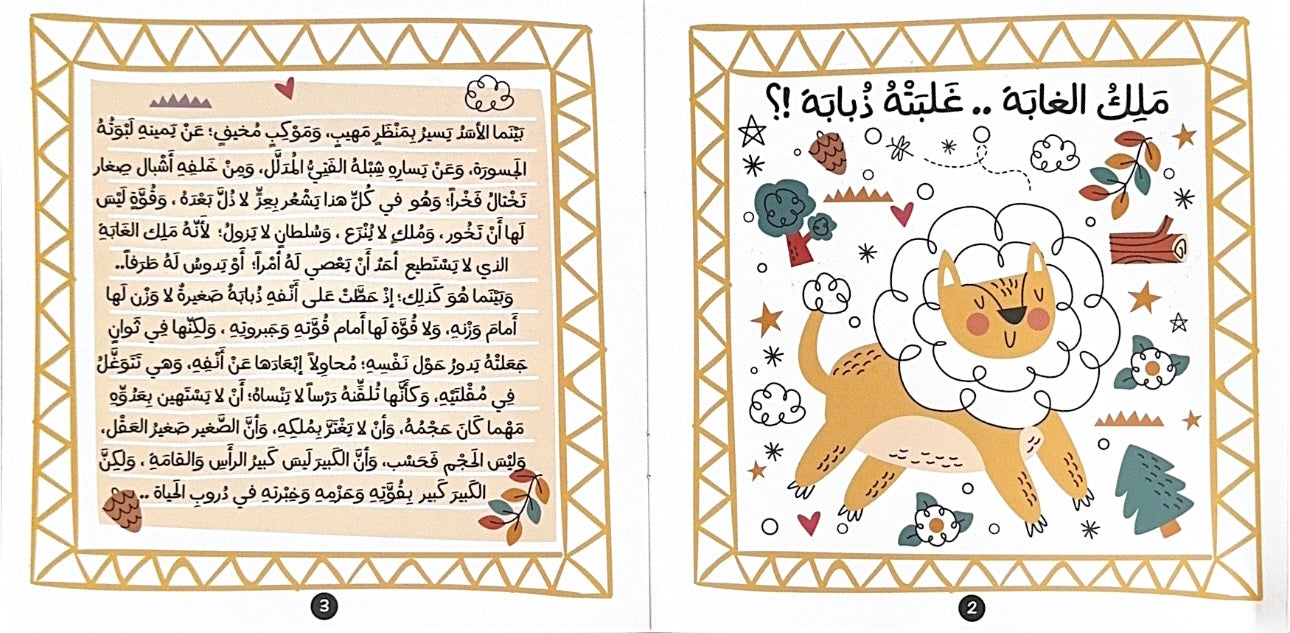 مَلِكُ الغابَة .. غَلبَتْهُ ذُبابَة !؟
2
بَيْنَما الأسَدُ يَسيرُ بِمَنْظَرٍ مَهيبٍ، وَمَوْكِبٍ مُخيفٍ؛ عَنْ يَمينهِ لَبْوَتُهُ
الجَسورَة، وَعَنْ يَسارِهِ شِبْلهُ الفَتِيُّ المُدَلَّل، وَمِنْ خَلفِهِ أشْبال صِغار
تَخْتالُ فَخْراً؛ وَهُو في كُلِّ هذا يَشْعُر بِعِزٍّ لا ذُلَّ بَعْدَهُ ، وَقُوَّةٍ لَيْسَ
لَها أَنْ تَخُور ، وَمُلكٍ لا يُنْزَع ، وَسُلطانٍ لا يَزولُ؛ لِأنَّهُ مَلِك الغَابَةِ
الذي لا يَسْتَطيع أَحَدٌ أَنْ يَعْصي لَهُ أَمْراً؛ أَوْ يَدوسُ لَهُ طَرَفاً..
وَبَيْنَما هُوَ كَذلِك؛ إذْ حَطَّتْ عَلى أَنْفهِ ذُبابَةٌ صَغيرةٌ لا وَزْن لَها
أَمامَ وَزْنِهِ، وَلا قُوَّة لَها أَمام قُوَّتِهِ وَجَبروتِهِ ، وَلكنّها فِي ثَوانٍ
جَعَلتْهُ يَدورُ حَوْل نَفْسِهِ؛ مُحاوِلاً إبْعَادَها عَنْ أَنْفِهِ، وَهي تَتَوَغَّلُ
فِي مُقْلتَيْهِ، وَكَأَنَّها تُلقِّنهُ دَرْساً لا يَنْساهُ؛ أَنْ لا يَسْتَهين بِعَدُوِّهِ
مَهْما كَانَ حَجْمُهُ، وَأنْ لا يَغْتَرَّ بِمُلكِهِ، وَأنَّ الصَّغير صَغيرُ العَقْل،
وَليْسَ الحَجْمِ فَحَسْب، وَأنَّ الكَبيرَ لَيسَ كَبيرُ الرأسِ وَالقامَةِ ، وَلكِنَّ
الكَبيرَ كَبير بِقُوَّتِهِ وَحَزْمِهِ وَخِبْرتِهِ في دُروبِ الحَياة ..
3